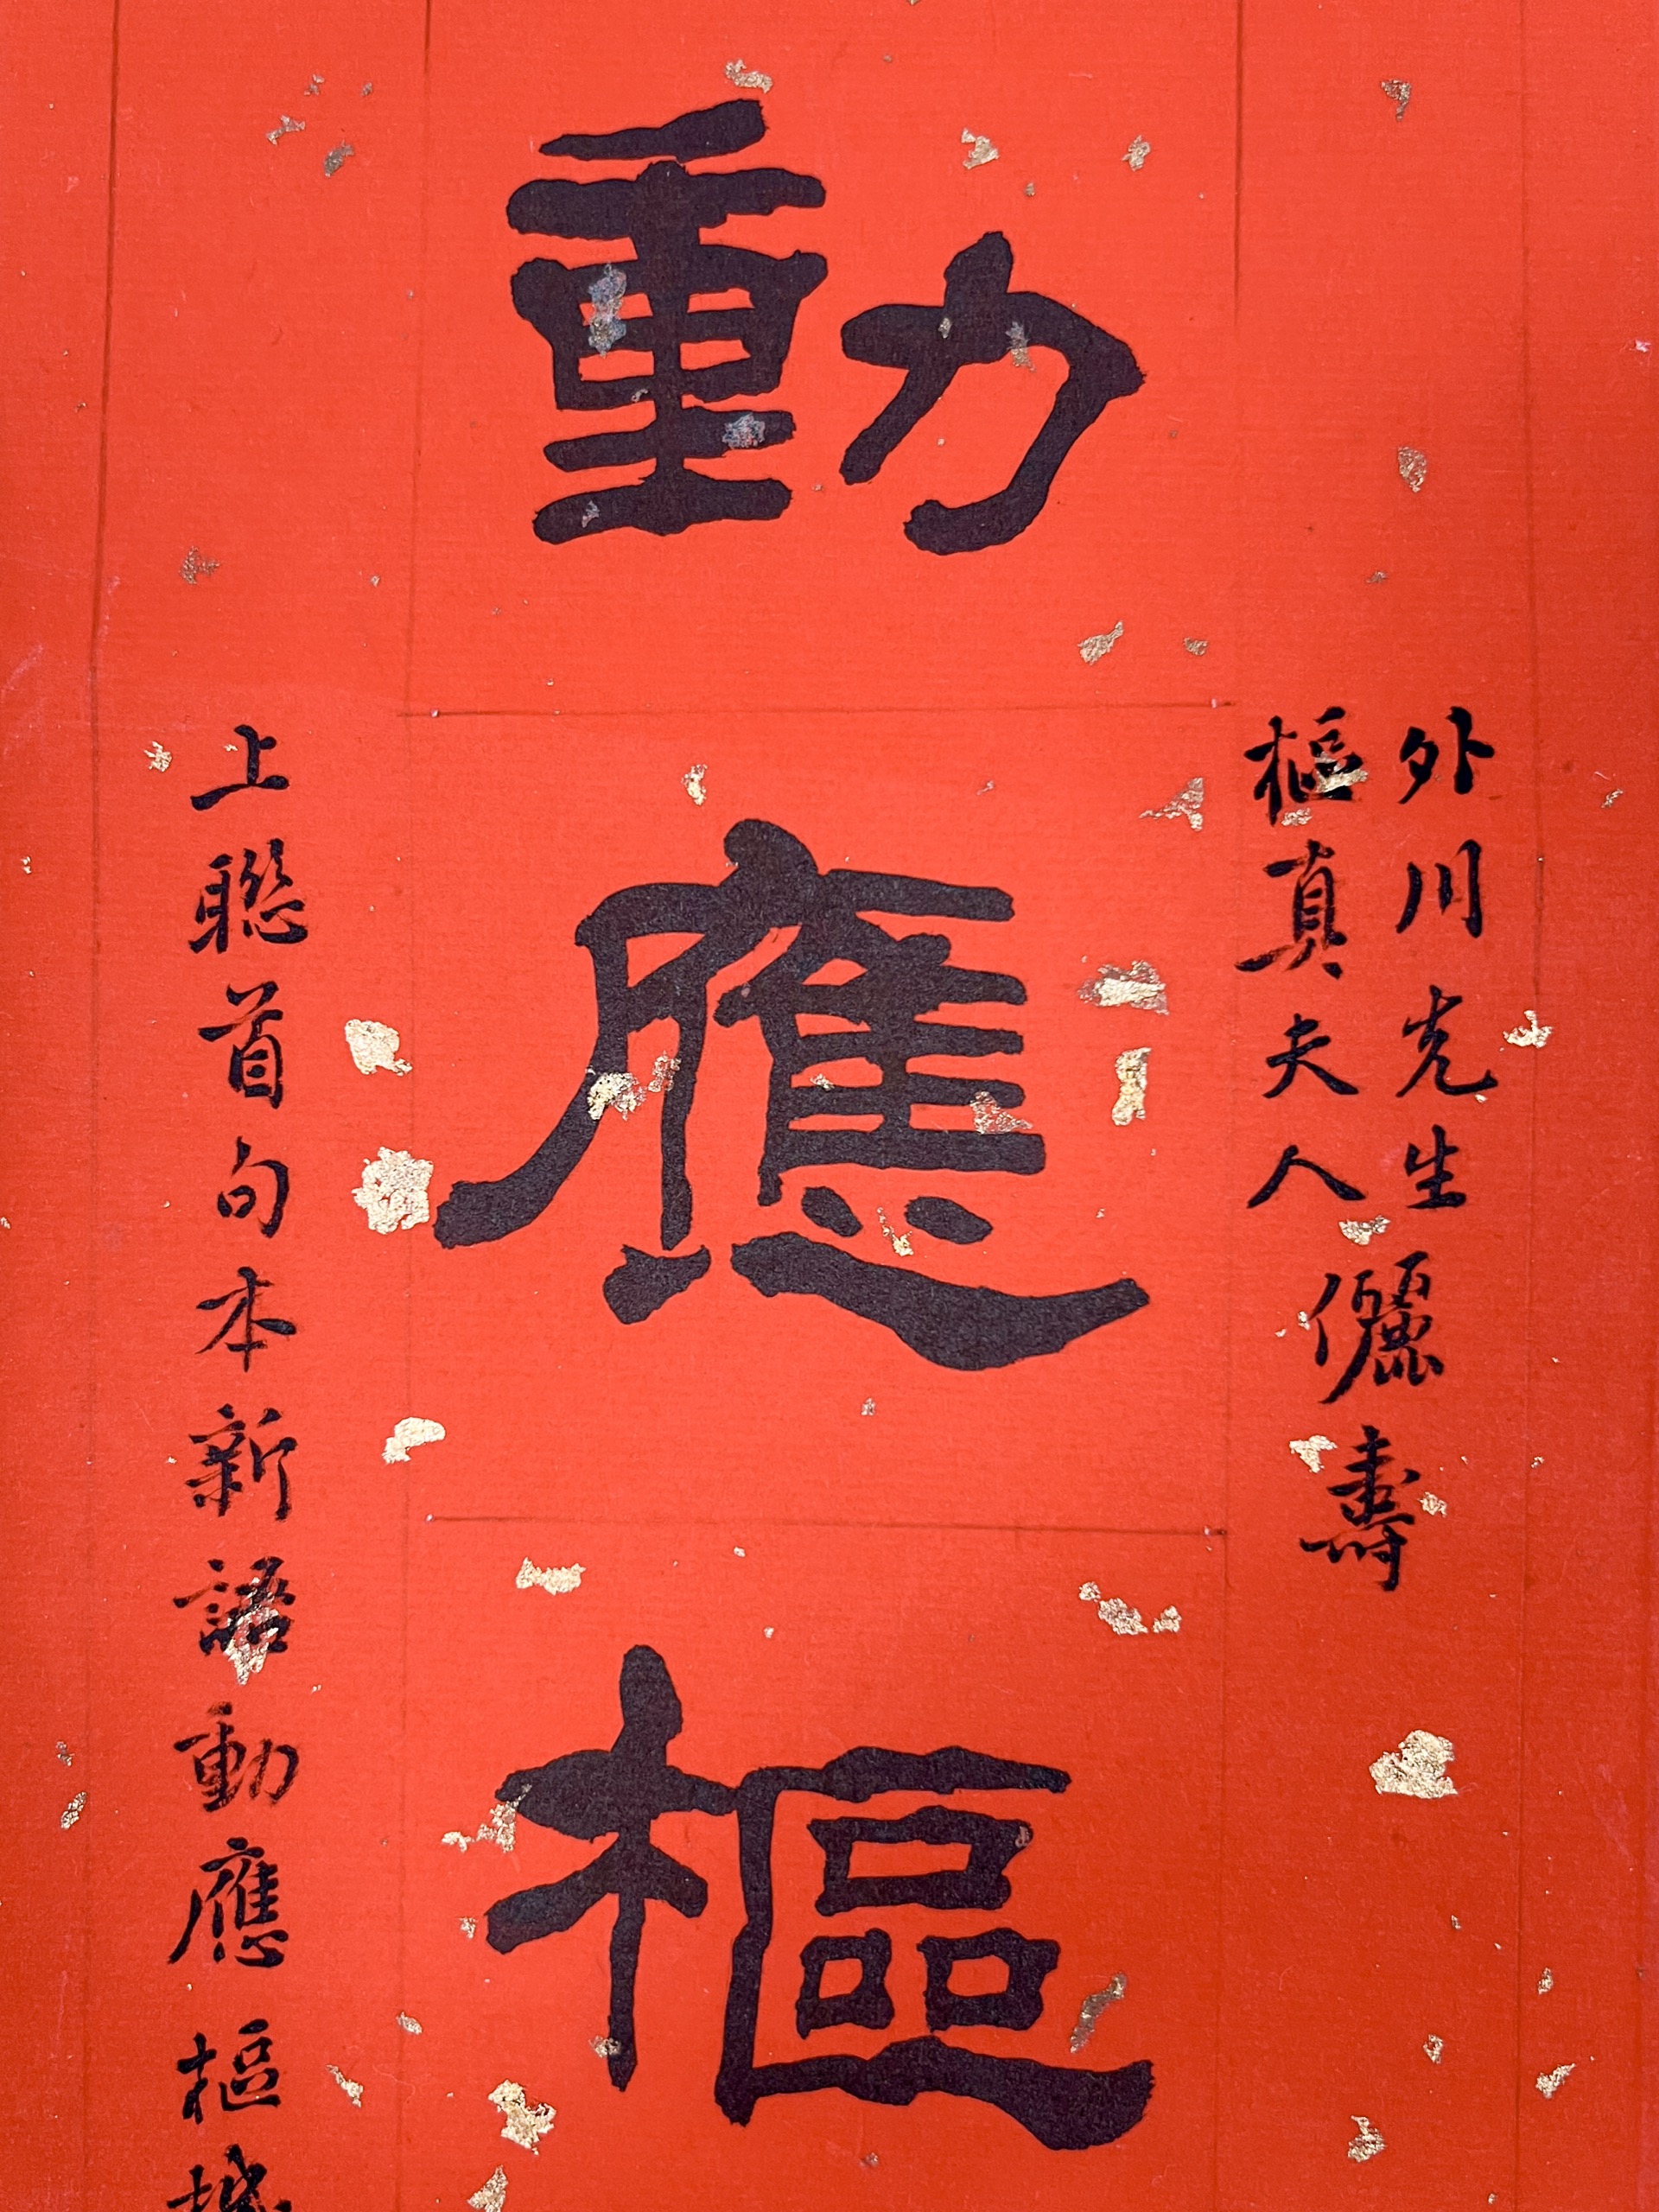 外川先生
樞真夫人
儷壽
動應樞
上聯首句本新語動應樞